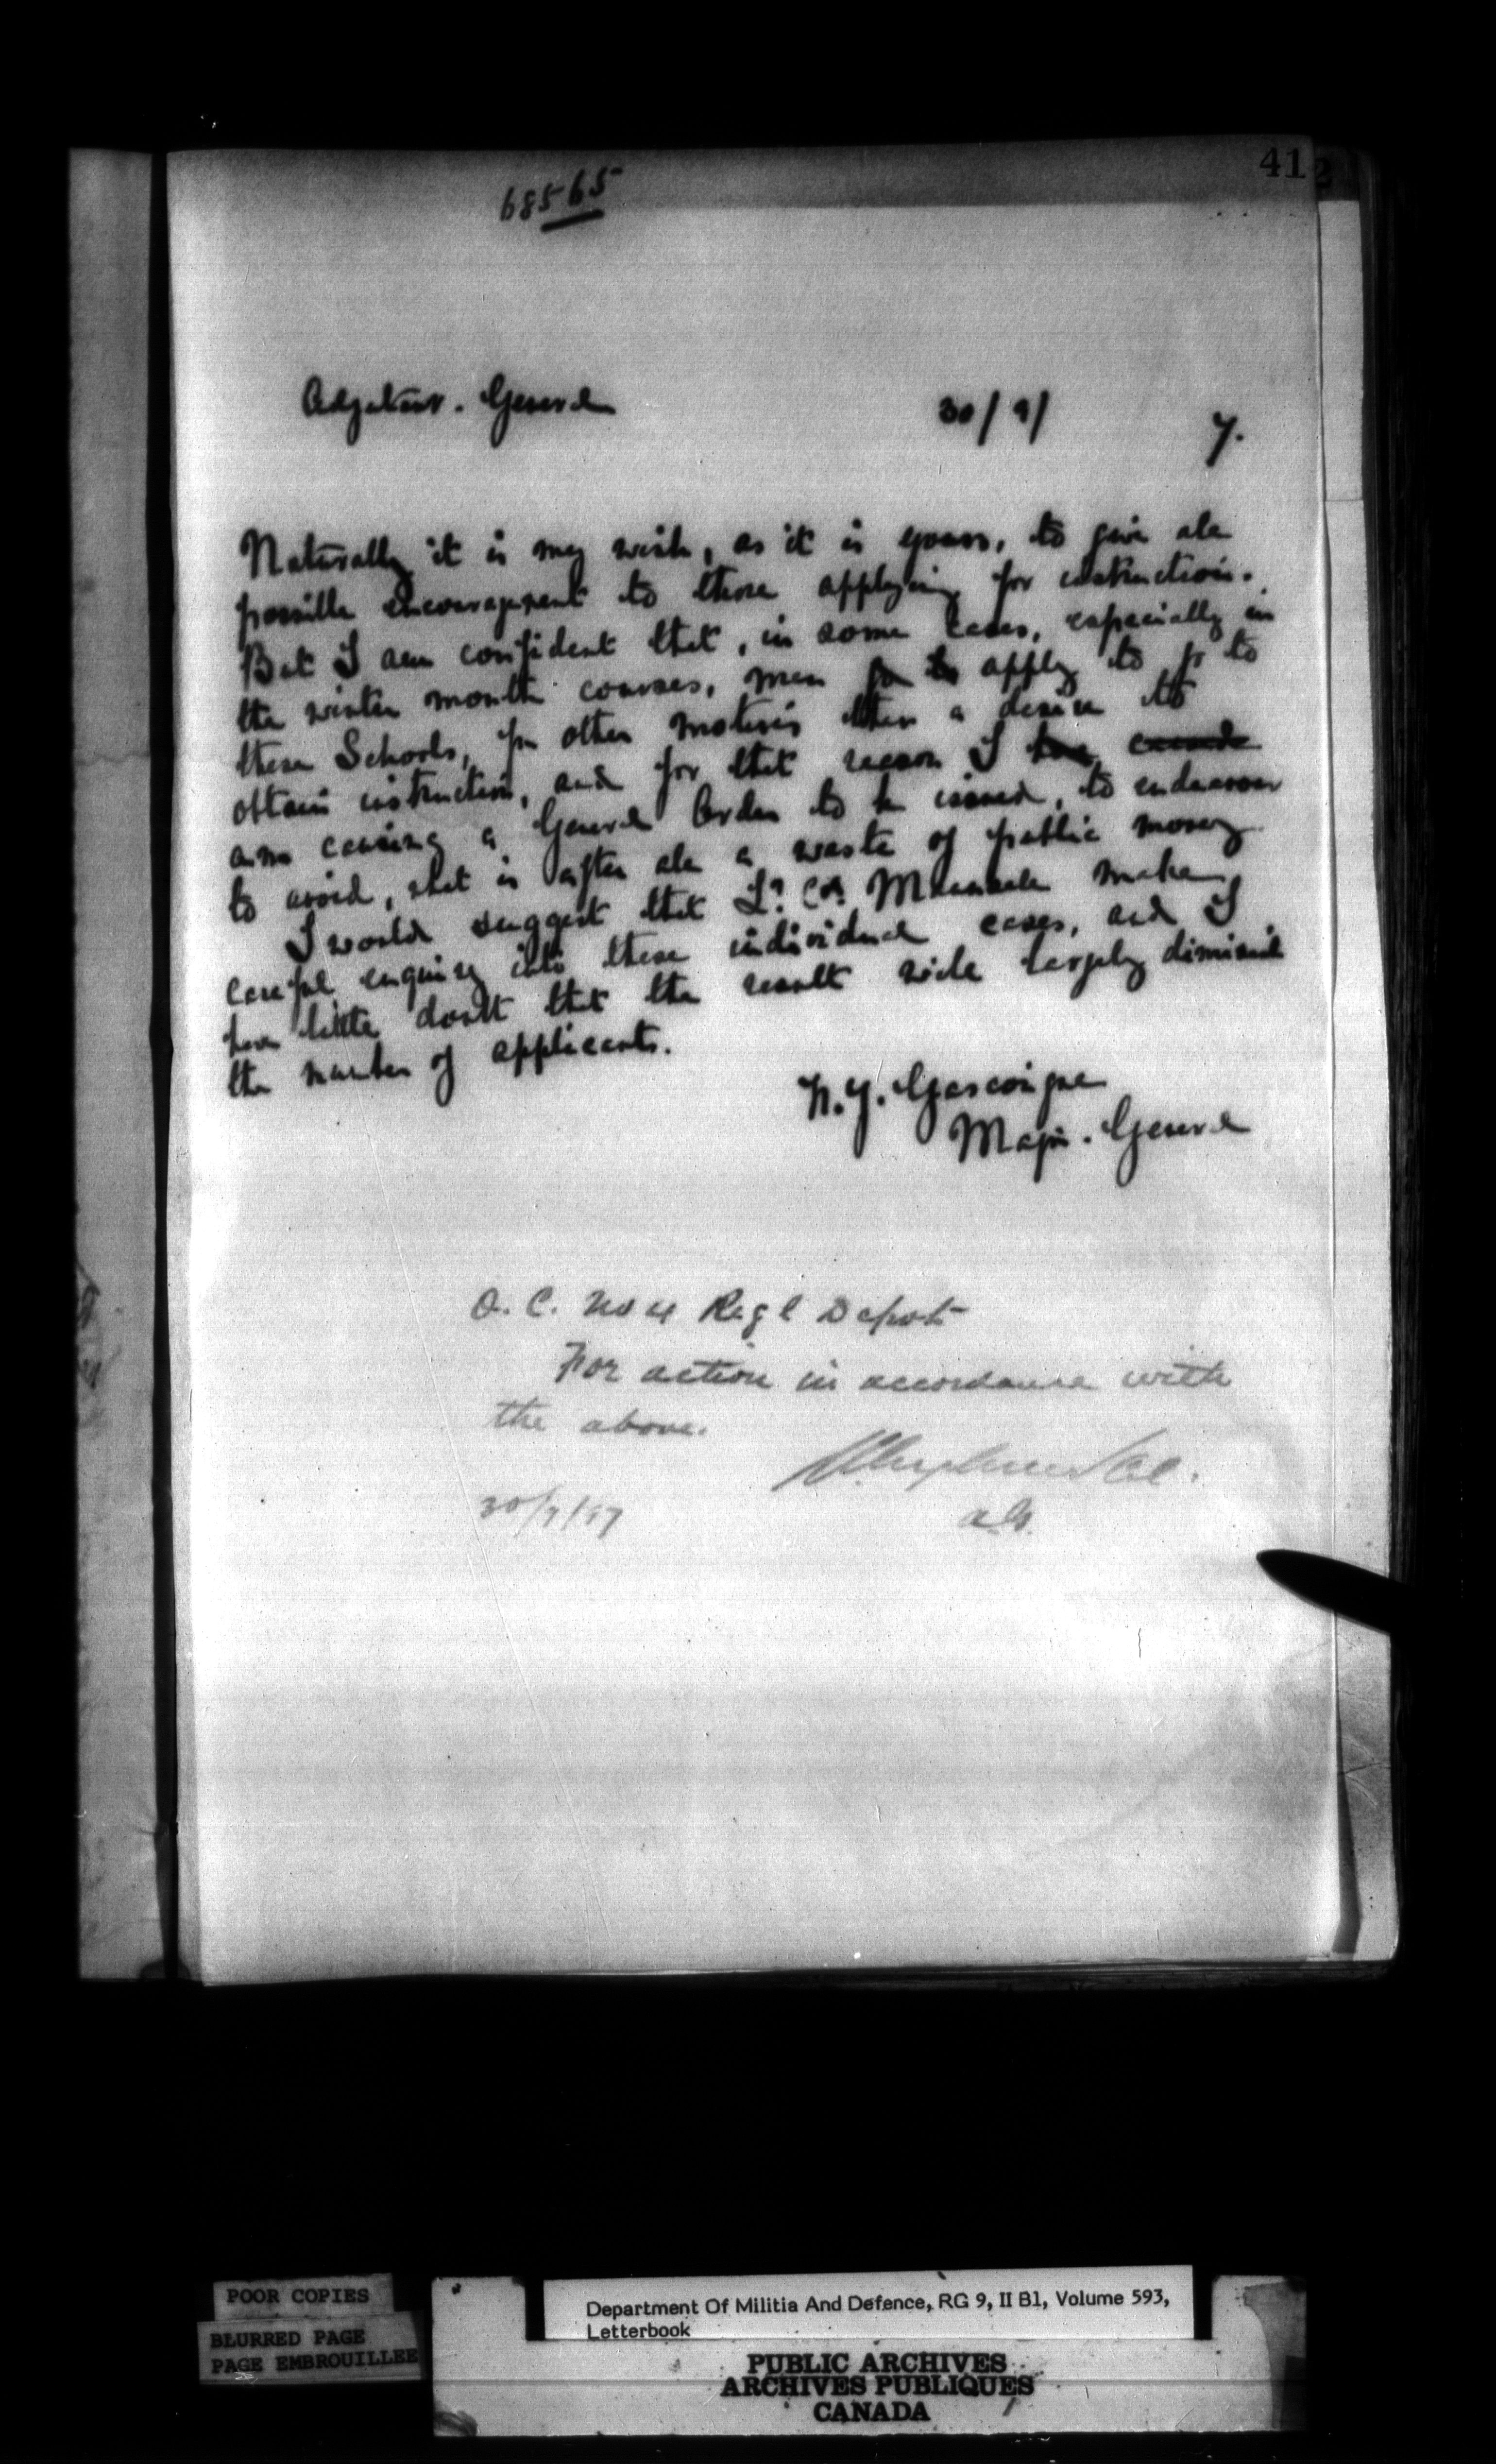 41
68565
Adjutant. General 30/9/ 7.
Naturally it is my wish, as it is yours, to give all
possible encouragement to those applying for instruction.
But I am confident that, in some cases, especially in
the winter month courses, men apply to go to
these Schools, for other motives than a desire to
obtain instruction, and for that reason I
am causing a General Order to be issued, to endeavour
to avoid, what is after all a waste of public money
I would suggest that Lt. Col. Maunsell make
careful enquiry into these individual cases, and I
have little doubt that the result will largely diminish
the number of applicants.
W. J. Gascoigne
Major. General
O. C. No 4 Regl Depot
For action in accordance with
the above.
Col.
30/9/97 AG.
POOR COPIES
BLURRED PAGE
PAGE EMBROUILLEE
Department Of Militia And Defence, RG 9, II B1, Volume 593,
Letterbook
PUBLIC ARCHIVES
ARCHIVES PUBLIQUES
CANADA